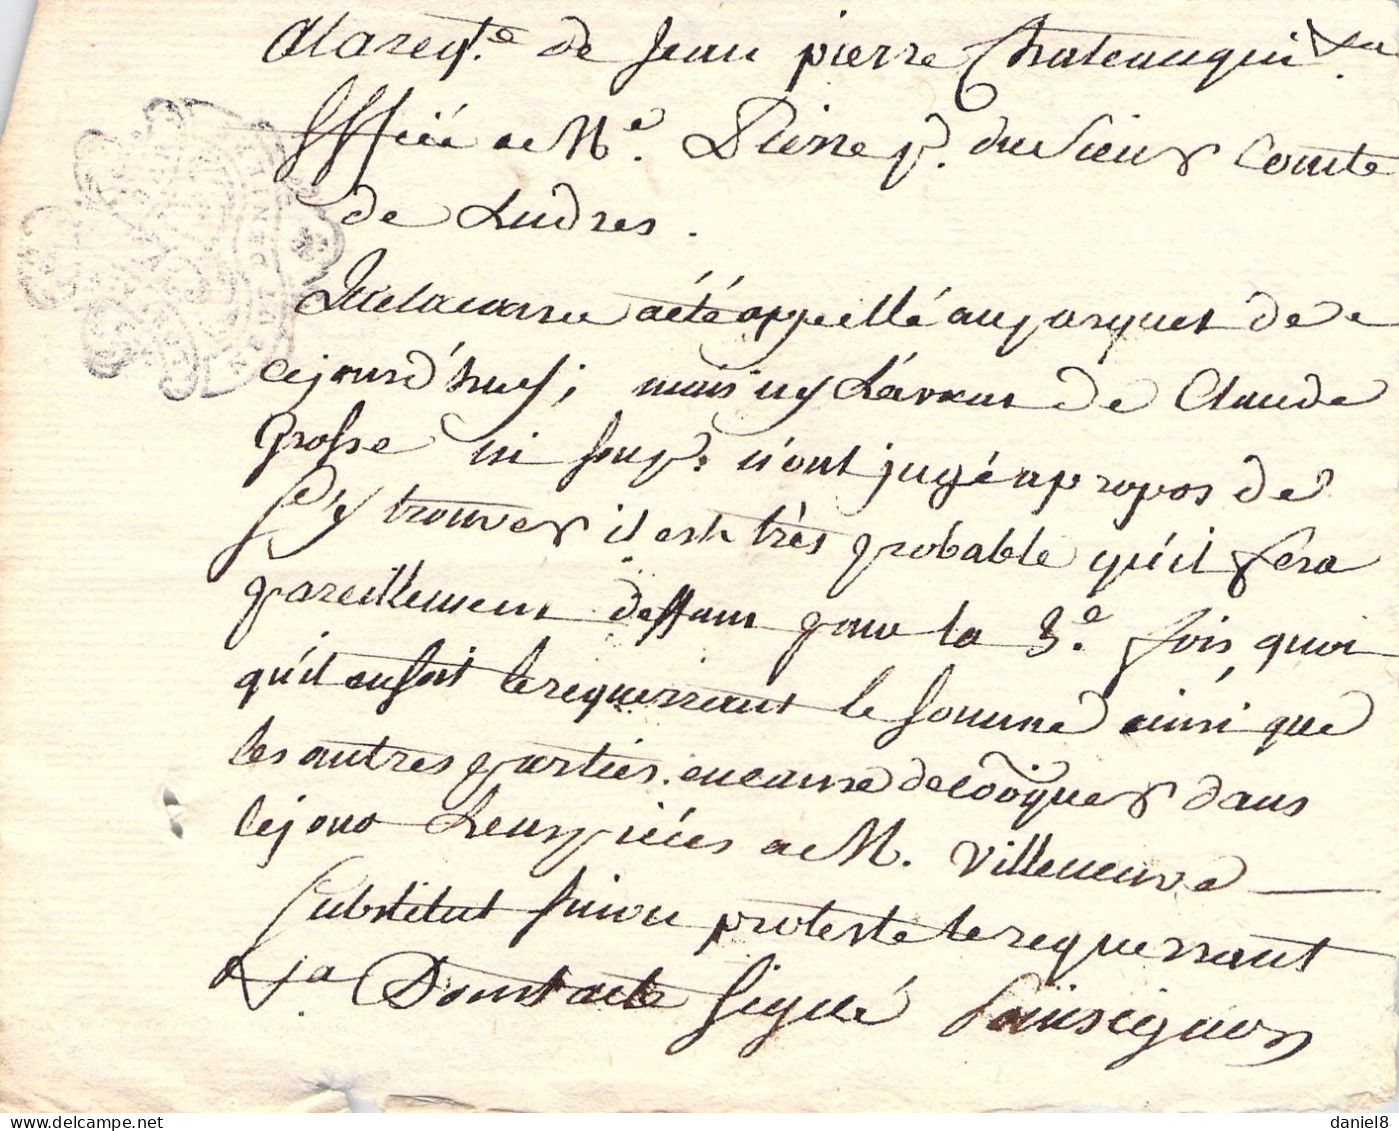 Alareqte. de Jean pierre Chateauqui
signifié a Me. Pierre p. du sieur Comte
de Ludres.
que la cause a été appellé au parquet de
cejourd'huy; mais ny L'avocat de Claude
grosse ni son p. n'ont jugé a propos de
s'y trouver il est très probable qu'il sera
pareillement deffaut pour la 3e. fois, quoi
qu'il en soit le requerrant le somme ainsi que
les autres parties en cause de coôquer dans
le jour Leurs pièces a M. Villeneuve
substitut sinon proteste le requerrant
Dont acte signé Sainsignon
daniel8